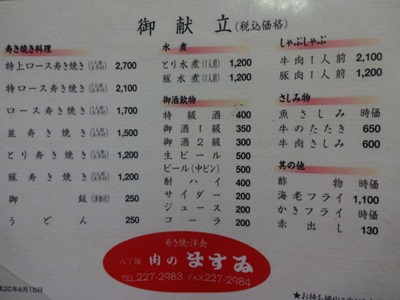 御献立(税込価格)
寿き焼き料理
特上ロース寿き焼き(1人前) 2,700
特ロース寿き焼き(1人前) 2,100
ロース寿き焼き(1人前) 1,700
並寿き焼き(1人前) 1,500
とり寿き焼き(1人前) 1,200
豚寿き焼き(1人前) 1,200
御飯 250
うどん 250
水煮
とり水煮(1人前) 1,200
豚水煮(1人前) 1,200
御酒飲物
特級酒 400
御酒1級 350
御酒2級 300
生ビール 500
ビール(中ビン) 500
酎ハイ 400
サイダー 200
ジュース 200
コーラ 200
しゃぶしゃぶ
牛肉1人前 2,100
豚肉1人前 1,200
さしみ物
魚さしみ 時価
牛のたたき 650
牛肉さしみ 600
其の他
酢物 時価
海老フライ 1,100
かきフライ 時価
赤出し 130
寿き焼・洋食
八丁堀 肉のますゐ
TEL.227-2983 FAX.227-2984
20年6月15日
★お持ち帰り